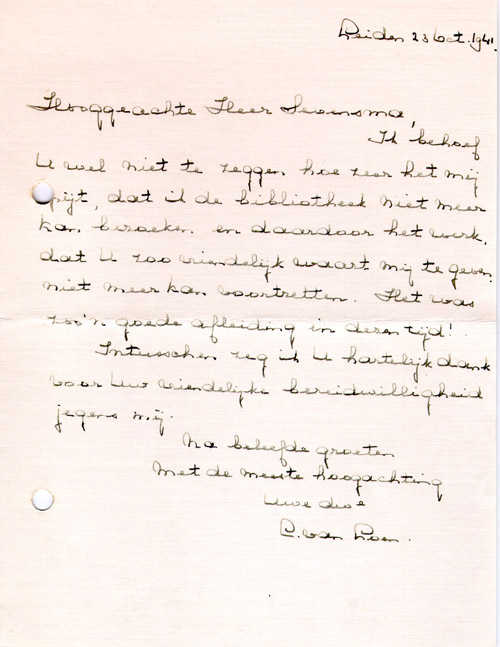 Leiden 23 Oct. 1941.
Hooggeachte Heer Sevensma,
Ik behoef
U wel niet te zeggen hoe zeer het mij
spijt, dat ik de bibliotheek niet meer
kan bezoeken en daardoor het werk,
dat U zoo vriendelijk waart mij te geven,
niet meer kan voortzetten. Het was
zoo'n goede afleiding in dezen tijd!
Intusschen zeg ik U hartelijk dank
voor Uw vriendelijke bereidwilligheid
jegens mij.
Na beleefde groeten
Met de meeste hoogachting
Uwe dwe
C. van